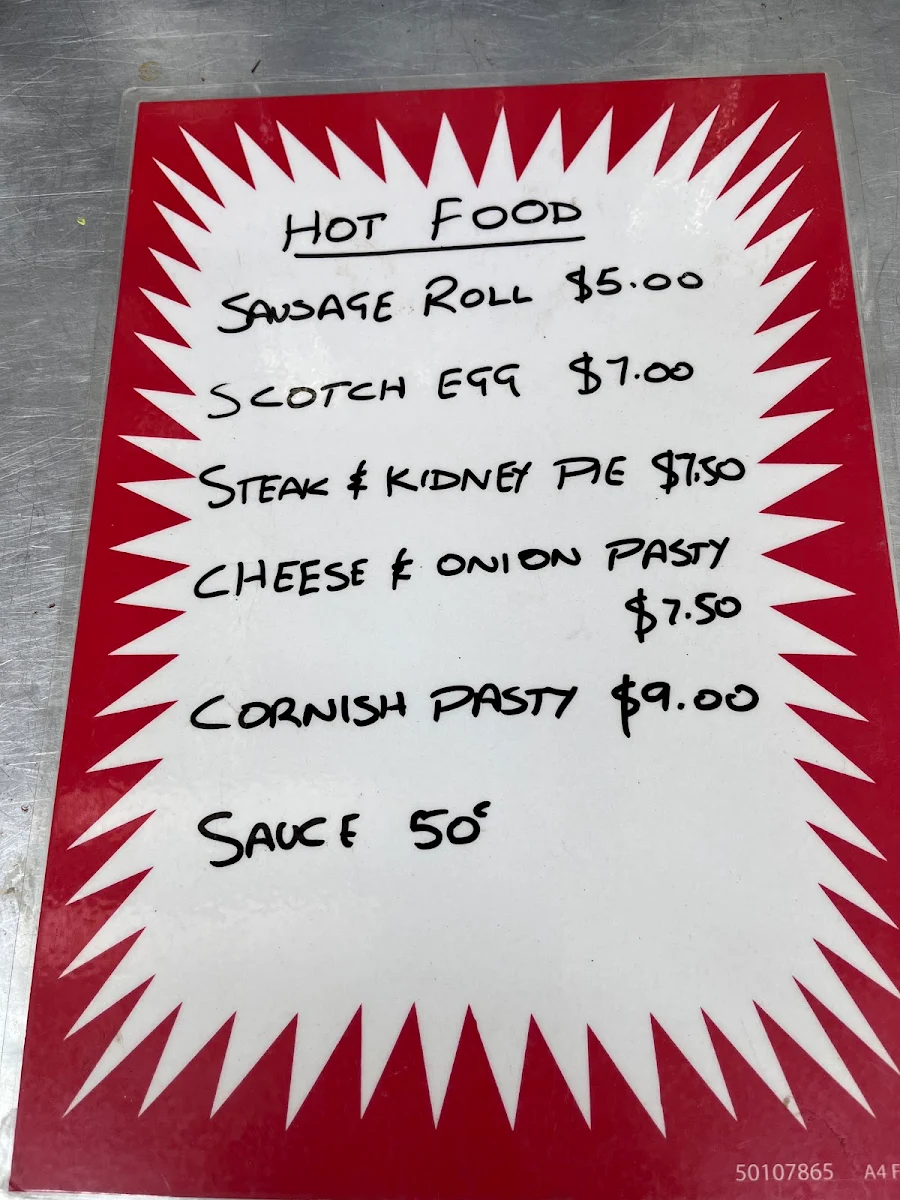 HOT FOOD
SAUSAGE ROLL $5.00
SCOTCH EGG $7.00
STEAK & KIDNEY PIE $7.50
CHEESE & ONION PASTY
$7.50
CORNISH PASTY $9.00
SAUCE 50c
50107865 A4 F